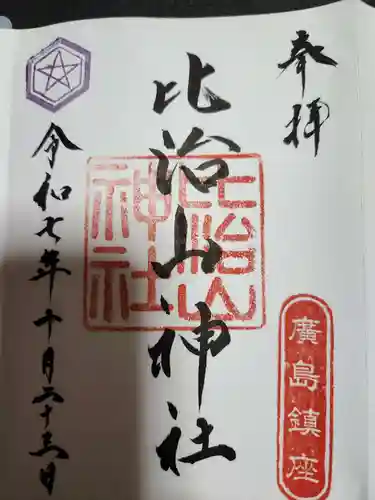 奉拝
廣島鎮座
比治山神社
比治山
神社
令和七年十月二十三日